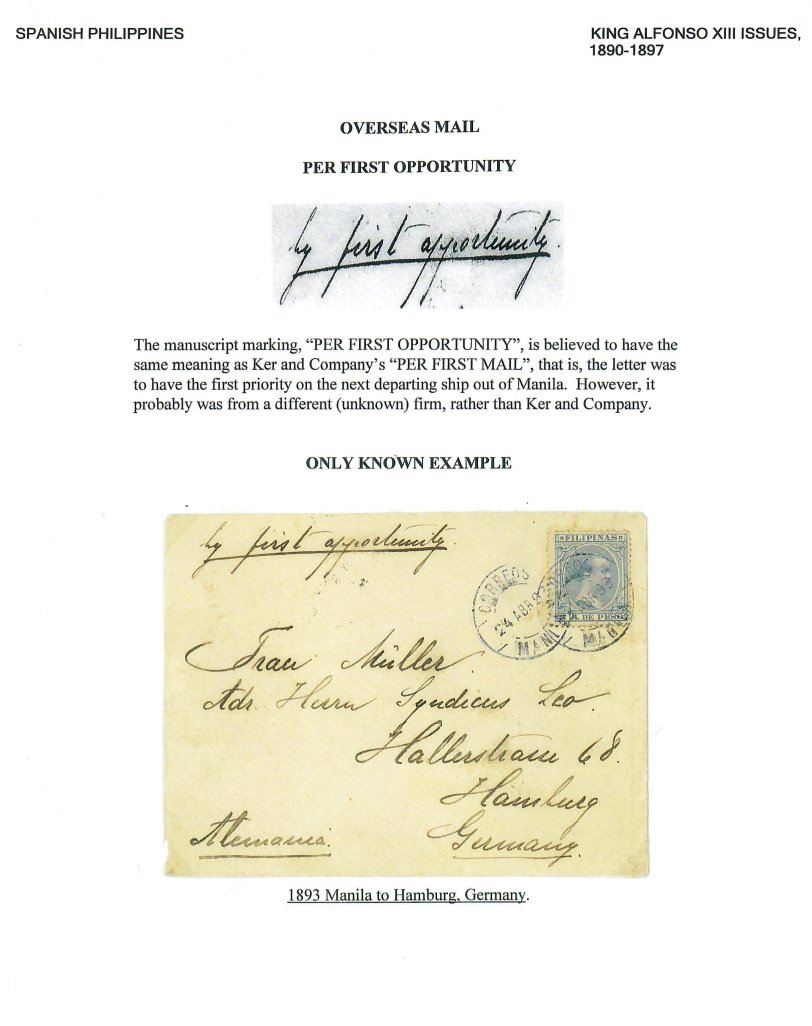 SPANISH PHILIPPINES
KING ALFONSO XIII ISSUES,
1890-1897
OVERSEAS MAIL
PER FIRST OPPORTUNITY
by first opportunity.
The manuscript marking, “PER FIRST OPPORTUNITY”, is believed to have the
same meaning as Ker and Company’s “PER FIRST MAIL”, that is, the letter was
to have the first priority on the next departing ship out of Manila. However, it
probably was from a different (unknown) firm, rather than Ker and Company.
ONLY KNOWN EXAMPLE
by first opportunity.
FILIPINAS
DE PESO
CORREOS
24 ABR 93
MANILA
MANILA
Frau Müller.
Adr. Herrn Syndicus Leo.
Hallerstrasse 68.
Hamburg
Alemania.
Germany.
1893 Manila to Hamburg, Germany.